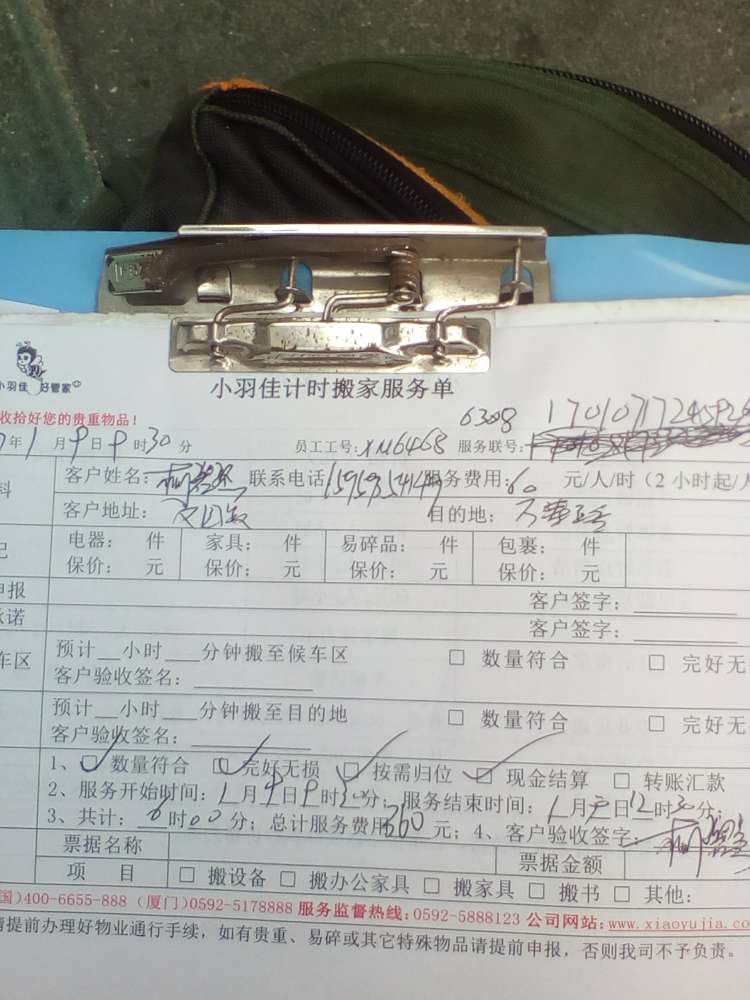 小羽佳 好管家
小羽佳计时搬家服务单
收拾好您的贵重物品！
6308 170107172459
年1月9日9时30分 员工工号：XM6468 服务联号：
料 客户姓名： 联系电话 服务费用：60 元/人/时（2 小时起/人
客户地址： 目的地：
记 电器： 件 家具： 件 易碎品： 件 包裹： 件
保价： 元 保价： 元 保价： 元 保价： 元
申报 客户签字：
承诺 客户签字：
车区 预计__小时___分钟搬至候车区 □ 数量符合 □ 完好无
客户验收签名：
预计__小时___分钟搬至目的地 □ 数量符合 □ 完好无
客户验收签名：
1、☑ 数量符合 ☑ 完好无损 ☑ 按需归位 ☑ 现金结算 □ 转账汇款
2、服务开始时间：1月9日9时30分；服务结束时间：1月9日12时30分；
3、共计：6时00分；总计服务费用360元；4、客户验收签字：
票据名称 票据金额
项 目 □ 搬设备 □ 搬办公家具 □ 搬家具 □ 搬书 □ 其他：
国)400-6655-888 (厦门)0592-5178888 服务监督热线：0592-5888123 公司网站：www.xiaoyujia.com
请提前办理好物业通行手续，如有贵重、易碎或其它特殊物品请提前申报，否则我司不予负责。